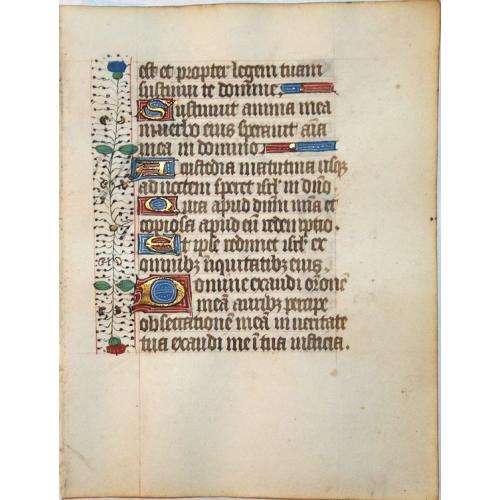 est et propter legem tuam
sustinui te domine.
Sustinuit anima mea
in verbo eius speravit aīa
mea in domino.
A custodia matutina usqȝ
ad noctem speret isrl̄ in dn̄o.
Quia apud dn̄m mīa et
copiosa apud eū redemptio.
Et ipse redimet isrl̄ ex
omnibȝ iniquitatibȝ eius.
Domine exaudi orōnē
meā auribȝ percipe
obsecrationē meā in veritate
tua exaudi me ī tua iusticia.